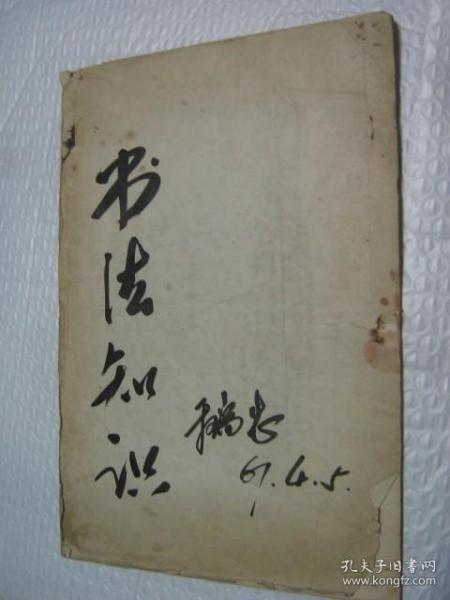 书法知识
67.4.5.
孔夫子旧书网
www.kongfz.com